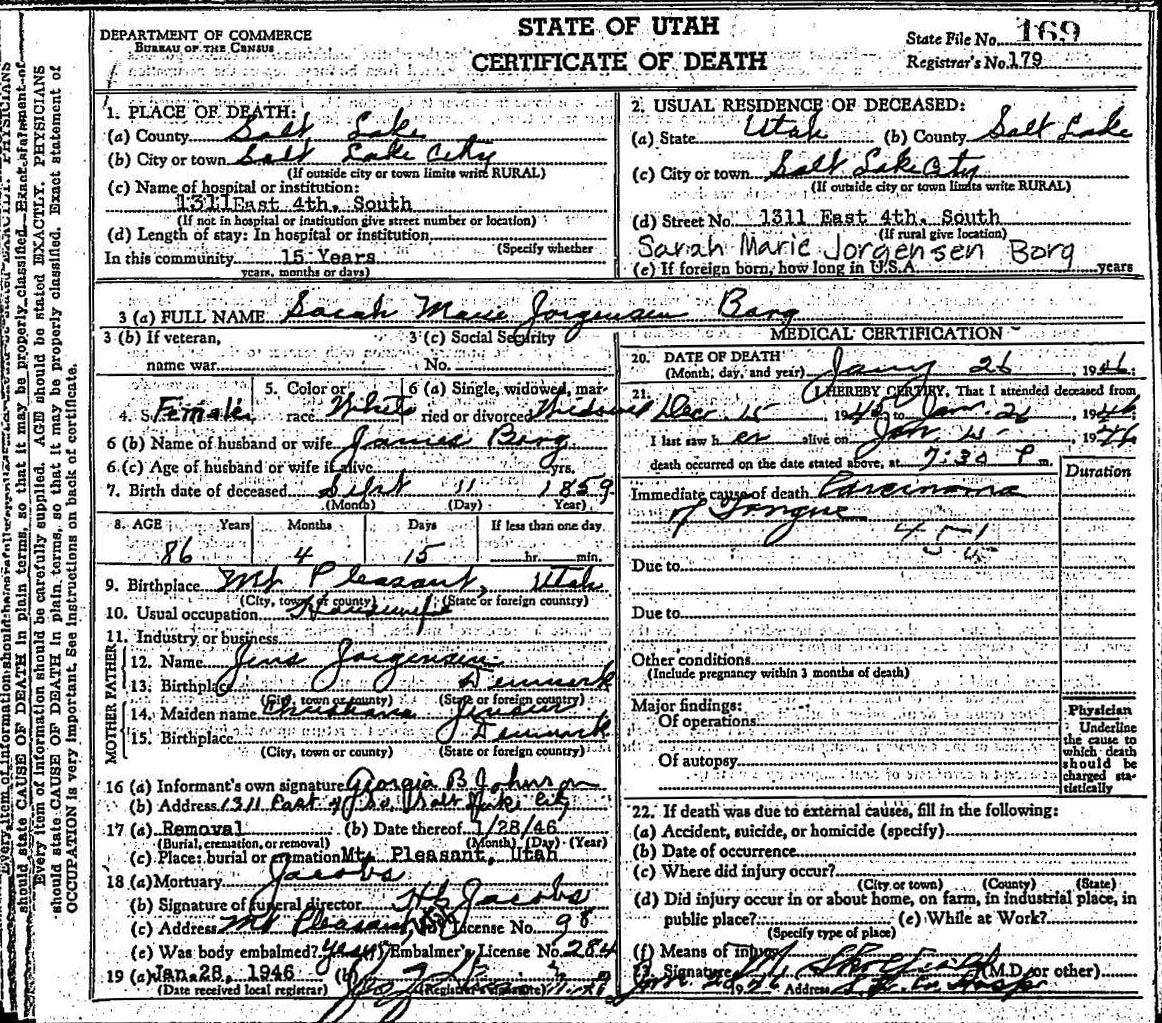 STATE OF UTAH
CERTIFICATE OF DEATH
DEPARTMENT OF COMMERCE
BUREAU OF THE CENSUS
State File No. 169
Registrar's No. 179
1. PLACE OF DEATH:
(a) County Salt Lake
(b) City or town Salt Lake City
(If outside city or town limits write RURAL)
(c) Name of hospital or institution:
1311 East 4th. South
(If not in hospital or institution give street number or location)
(d) Length of stay: In hospital or institution
(Specify whether
In this community 15 Years
years, months or days)
2. USUAL RESIDENCE OF DECEASED:
(a) State Utah (b) County Salt Lake
(c) City or town Salt Lake City
(If outside city or town limits write RURAL)
(d) Street No. 1311 East 4th. South
(If rural give location)
Sarah Marie Jorgensen Borg
(e) If foreign born, how long in U.S.A. years
3 (a) FULL NAME Sarah Marie Jorgensen Borg
3 (b) If veteran,
name war
3 (c) Social Security
No.
4. Sex Female
5. Color or
race White
6 (a) Single, widowed, mar-
ried or divorced Widowed
6 (b) Name of husband or wife James Borg
6 (c) Age of husband or wife if alive yrs.
7. Birth date of deceased Sept 11 1859
(Month) (Day) Year)
8. AGE Years Months Days If less than one day
86 4 15 hr. min.
9. Birthplace Mt Pleasant, Utah
(City, town or county) (State or foreign country)
10. Usual occupation Housewife
11. Industry or business
FATHER
12. Name Jens Jorgensen
13. Birthplace Denmark
(City, town or county) (State or foreign country)
MOTHER
14. Maiden name Christiana Jensen
15. Birthplace Denmark
(City, town or county) (State or foreign country)
16 (a) Informant's own signature Georgia B Johnson
(b) Address 1311 East 4 So. Salt Lake City
17 (a) Removal (b) Date thereof 1/28/46
(Burial, cremation, or removal) (Month) (Day) (Year)
(c) Place: burial or cremation Mt. Pleasant, Utah
18 (a) Mortuary Jacobs
(b) Signature of funeral director Jacobs
(c) Address Mt Pleasant License No. 98
(e) Was body embalmed? yes (f) Embalmer's License No. 284
19 (a) Jan. 28, 1946 (b)
(Date received local registrar) (Registrar's signature)
MEDICAL CERTIFICATION
20. DATE OF DEATH
(Month, day, and year) Jany 26, 1946.
21. I HEREBY CERTIFY, That I attended deceased from
Dec 15 1945 to Jan. 26, 1946
I last saw her alive on Jan 1946
death occurred on the date stated above, at 7:30 P m.
Duration
Immediate cause of death Carcinoma
of Tongue
45-1
Due to
Due to
Other conditions
(Include pregnancy within 3 months of death)
Major findings:
Of operations
Of autopsy
Physician
Underline
the cause to
which death
should be
charged sta-
tistically
22. If death was due to external causes, fill in the following:
(a) Accident, suicide, or homicide (specify)
(b) Date of occurrence
(c) Where did injury occur?
(City or town) (County) (State)
(d) Did injury occur in or about home, on farm, in industrial place, in
public place? (e) While at Work?
(Specify type of place)
(f) Means of injury
23. Signature (M.D. or other)
Address
should state CAUSE OF DEATH in plain terms, so that it may be properly classified. Exact statement of
Every item of information should be carefully supplied. AGE should be stated EXACTLY. PHYSICIANS
should state CAUSE OF DEATH in plain terms, so that it may be properly classified. Exact statement of
OCCUPATION is very important. See instructions on back of certificate.